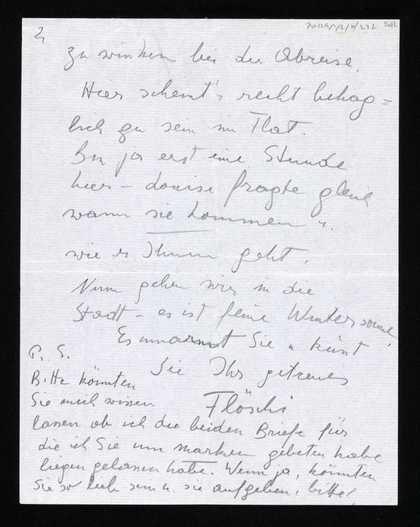 2
zu winken bei der Abreise.
Hier scheint's recht behag=
lich zu sein im Flat.
Bin ja erst eine Stunde
hier – Louise fragte gleich
wann sie kommen u.
wie es Ihnen geht.
Nun gehen wir in die
Stadt – es ist feine Wintersonne!
Es umarmt Sie u küsst
Sie Ihr getreues
Flöschi
P. S.
Bitte könnten
Sie mich wissen
lassen ob ich die beiden Briefe für
die ich Sie um marken gebeten habe
liegen gelassen habe. Wenn ja, könnten
Sie so lieb sein u. sie aufgeben, bitte!